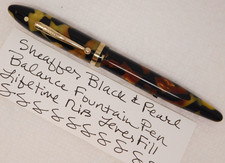 Sheaffer Black & Pearl
Balance Fountain Pen
Lifetime Nib, Lever Fill